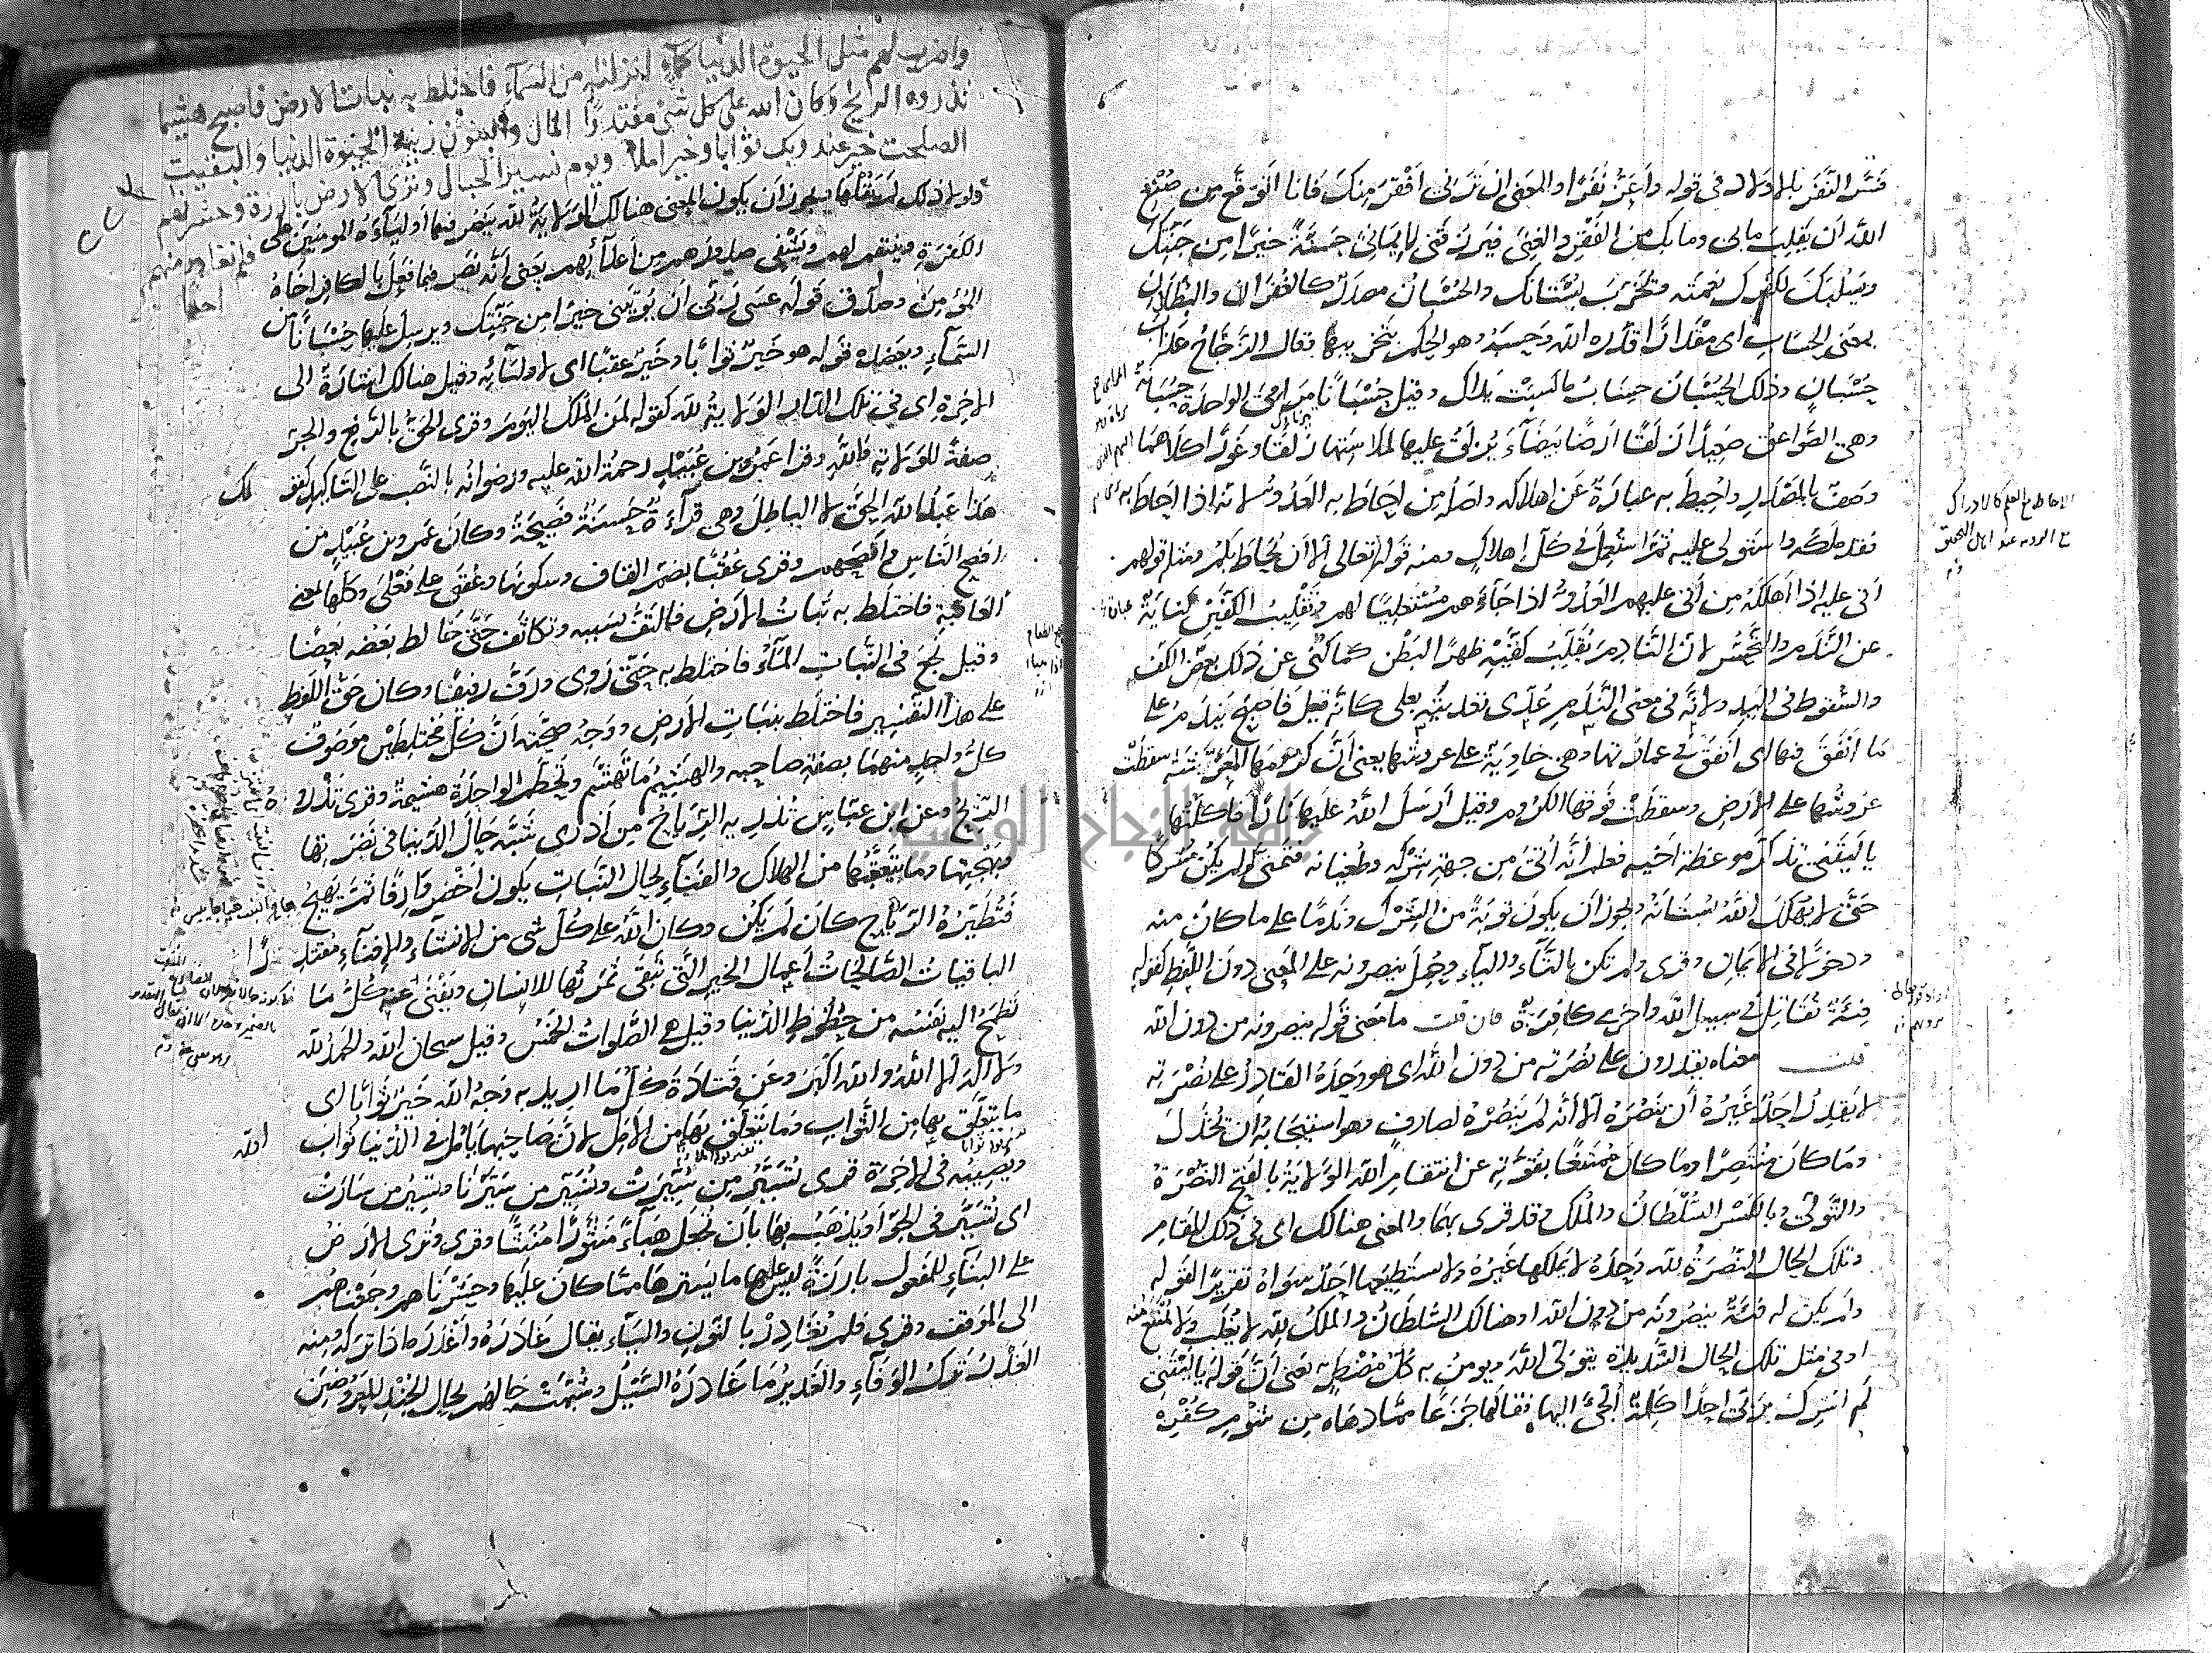 فسّر النَّفَر بالاولاد في قوله واَعَزُّ نَفَرًا والمعنى ان تَرَني اَفْقَرَ مِنكَ فَانا اَتوقّع مِن صُنْع
اللّه اَن يَقلِبَ ما بى وما بك مِن الفَقْرِ والغِنَى فيَرزقَنى لايمانى جَنَّةً خيرًا مِن جنّتك
ويَسْلُبَكَ لكُفرك نِعْمتَه ويُخَرِّبَ بُسْتانَك والحُسْبانُ مصدر كالغُفران والبُطلان
بمعنى الحِسَاب اى مِقْدارًا قدّره اللّه وحَسَبَه وهو الحكم بتخريبها وقال الزَّجّاجُ عذابَ
حُسْبانٍ وذلك الحُسْبان حِسَابُ ما كسبَتْ يداك وقيل حُسْبانًا مَرامِىَ الواحدة حُسْبانَةٌ
وهى الصَّواعِقُ صَعِيدًا زَلَقًا اَرضًا بَيضَآءَ يُزلَقُ عليها لمَلاسَتِها زلَقًا وغَورًا كلاهما
وصف بالمصدر واُحيطَ به عبارةٌ عن اهلاكه واصلُه مِن اَحَاطَ به العَدُوّ لانه اذا اَحاطَ به
فقد ملكَه واستولى عليه ثمّ استُعْمِلَ فى كلّ اهلاكٍ ومنه قوله تعالى الّا اَن يُحاطَ بكُم ومثله قولهم
اَتى عليه اذا اَهلَكَه مِن اَتى عليهم العَدُوُّ اذا جآءَهم مُستَعليًا لهم وتَقليبُ الكفّين كنايةٌ
عن النَّدم والتَّحَسُّر لانّ النّادِمَ يُقَلِّبُ كفّيه ظهرًا لبَطْنٍ كما كُنِى عن ذلك بعَضّ الكفّ
والسُّقوط فى اليد ولانّه فى معنى النّدم عُدّى تعديَتَه بعلى كانّه قيل فاَصبَحَ يَندَمُ على
مَا اَنفَقَ فيها اى اَنفَقَ فى عمارتها وهى خاوِيةٌ على عروشها يعنى اَنَّ كُرومَها المُعَرَّشَةَ سقَطَتْ
عروشُها على الارضِ وسقطَتْ فوقها الكروم وقيل اَرسَلَ اللّهُ عليها نَارًا فاكلَتْها
يا ليتَنى تذكّرَ موعظةَ اخيه فعلم انّه اُتِىَ مِن جِهَةِ شِرْكه وطُغيانه فتَمنّى لو لم يَكن مُشركًا
حتّى لا يُهلِكَ اللّهُ بُستانَهُ ويجوز اَن يكون توبَةً من الشِّرْك ونَدَمًا على ما كان منه
ودخولًا فى الايمان وقرى ولم تكن بالتّآء واليآء وحُمِلَ ينصرونه على المعنى دون اللّفظ كقوله
فِئَةٌ تُقاتِلُ فى سبيل اللّه واُخرى كافِرَةٌ فان قلت ما معنى قوله ينصرونه من دون اللّه
قلت معناه يقدرون على نُصْرَته من دون اللّه اى هو وَحدَهُ القادِرُ على نُصْرَته
لا يَقدِرُ اَحَدٌ غيرُهُ اَن يَنصُرَهُ الّا اَنّه لَم يَنصُرْهُ لصارفٍ وهو استيجابُه ان يُخذَلَ
ومَا كانَ مُنتَصِرًا وما كانَ مُمتَنِعًا بقوّته عن انتقامِ اللّه الوَلايةُ بالفتح النُّصْرَةُ
والتَّوَلّى وبالكَسْرِ السُّلطَانُ والمُلك وقد قرى بهما والمعنى هنالك اى فى ذلك المقام
وتلك الحالِ النُّصْرَةُ للّه وَحدَهُ لا يَملكها غيرُهُ ولا يستطيعها اَحَدٌ سواهُ تقريرًا لقوله
ولم يكن له فئَةٌ ينصرونه من دون اللّه او هنالك السُّلطانُ والمُلكُ للّه لا يُغلَبُ ولا يُمتَنَعُ منه
او فى مثل تلك الحال الشّديدة يتولّى اللّهَ ويومنُ به كلّ مُضْطَرٍّ يعنى اَنَّ قوله يا ليتَنى
لم اُشرِكْ بربّى اَحَدًا كلمةٌ اُلجِئَ اليها فقالها جَزَعًا ممّا دهَاه مِن شُؤْمِ كُفْرِهِ
الاحاطه بالعلم كالادراك
واضرب لهم مثل الحيوة الدنيا كمآء انزلنه من السمآء فاختلط به نبات الارض فاصبح هشيما
تذروه الريح وكان الله على كل شئ مقتدرا المال والبنون زينة الحيوة الدنيا والبقيت
الصلحت خير عند ربك ثوابا وخير املا ويوم نسير الجبال وترى الارض بارزة وحشرنهم
فلم نغادر منهم
احدا
ولولا ذلك لم يَقُلْها ويجوز اَن يكون المعنى هنالك الوَلايةُ للّه ينصر فيها اَولياءَه المومنين على
الكفَرَةِ وينتقم لهم ويَشْفى صدورَهم من اَعدآئهم يعنى اَنّه نصَر فيما فعَلَ بالكافر اخاهُ
المؤمِنَ وصدّق قَولَه عسَى رَبّى اَن يُؤتيَنى خيرًا مِن جنّتك ويرسِلَ عليها حُسْبانًا من
السَّمآءِ ويعضده قوله هو خيرٌ ثوابًا وخيرٌ عقبًا اى لاوليائه وقيل هنالك اشارةٌ الى
الاخِرةِ اى فى تلك الدّار الوَلايةُ للّه كقوله لمَن المُلكُ اليومَ وقرى الحقّ بالرّفع والجرّ
صفةً للوَلايةِ واللّهِ وقرا عَمرُو بن عُبَيْدٍ رحمة اللّه عليه ورضوانه بالنَّصب على التّاكيد كقولك
هذا عَبدُ اللّه الحقَّ لا الباطِلَ وهى قِرآءَةٌ حسنةٌ فصيحَةٌ وكانَ عَمرو بن عُبَيْدٍ من
افصح النّاس وانصَحِهم وقرى عُقْبًا بضمّ القاف وسكونها وعُقبَى على فُعْلَى وكلّها بمعنى
العاقبةِ فاختلط به نباتُ الارضِ فالتَفَّ بسببه وتكاثَف حتّى خالط بَعضُه بَعضًا
وقيل نَجَعَ فى النَّباتِ المآءُ فاختلط به حتّى رَوِى ورَفّ رفيفًا وكان حقّ اللّفظِ
على هذا التّفسير فاختلط بنبَاتِ الارضِ ووَجهُ صحّتِه اَنَّ كُلَّ مُختَلِطَيْن موصوفٌ
كلُّ واحدٍ منهما بصفةِ صاحبه والهَشيمُ ما تَهَشَّمَ وتَحطَّم الواحدةُ هشيمةٌ وقرى تَذْروهُ
الرّيحُ وعن ابن عبّاسٍ تُذريه الرّياحُ مِن اَذرى شبّه حالَ الدُّنيا فى نَضْرَتِها
وبَهْجَتها وما يتعقّبُها من الهلاك والفنآءِ بحال النَّباتِ يكون اَخضرَ وارِفًا ثمّ يَهيجُ
فتُطَيّرُهُ الرّياح كان لم يكُن وكان اللّهُ على كُلّ شىءٍ من الانشآء والافنآء مُقتَدِرًا
الباقياتُ الصَّالحاتُ اَعمال الخير الّتى تبقى ثمرتُها للانسانِ ويَفنَى عنه كُلُّ مَا
تَطمَحُ اليه نفسُه من حظوظ الدّنيا وقيل هى الصَّلواتُ الخَمْسُ وقيل سبحان اللّه والحمدُ للّه
ولا الهَ الا اللّهُ واللّه اكبَرُ وعَن قتَادَةَ كُلّ ما اُريد به وَجهُ اللّه خيرٌ ثَوَابًا اى
ما يتعلّق بها مِن الثّواب وما يتعلّق بها من الاَمَل لانّ صَاحِبَها يَأمُلُ فى الدّنيا ثوابَ اللّه
ويُصيبُه فى الاخرَة قرى تُسَيَّرُ مِن سُيِّرَتْ ونُسَيّرُ من سَيَّرْنَا وتَسِيرُ من سَارَتْ
اى تُسَيَّرُ فى الجوّ اَو يُذهَبُ بها بأن تُجعَل هبآءً منثُورًا مُنبَثًّا وقرى وتُرى الارضُ
على البنآءِ للمَفعول بارزةً ليس عليها ما يَستُرها ممّا كان عليها وحشَرْنَاهم وجمعناهُم
الى المَوقف وقرى فلم نغَادِرْ بالنّونِ واليآء يقال غَادَرَهُ واَغْدَرَه اذا تركه ومنه
الغَدْرُ تَركُ الوفآءِ والغَديرُ مَا غَادَرَهُ السَّيْلُ وشُبِّهَتْ حالُهم بحالِ الجُنْدِ المَعروضِين